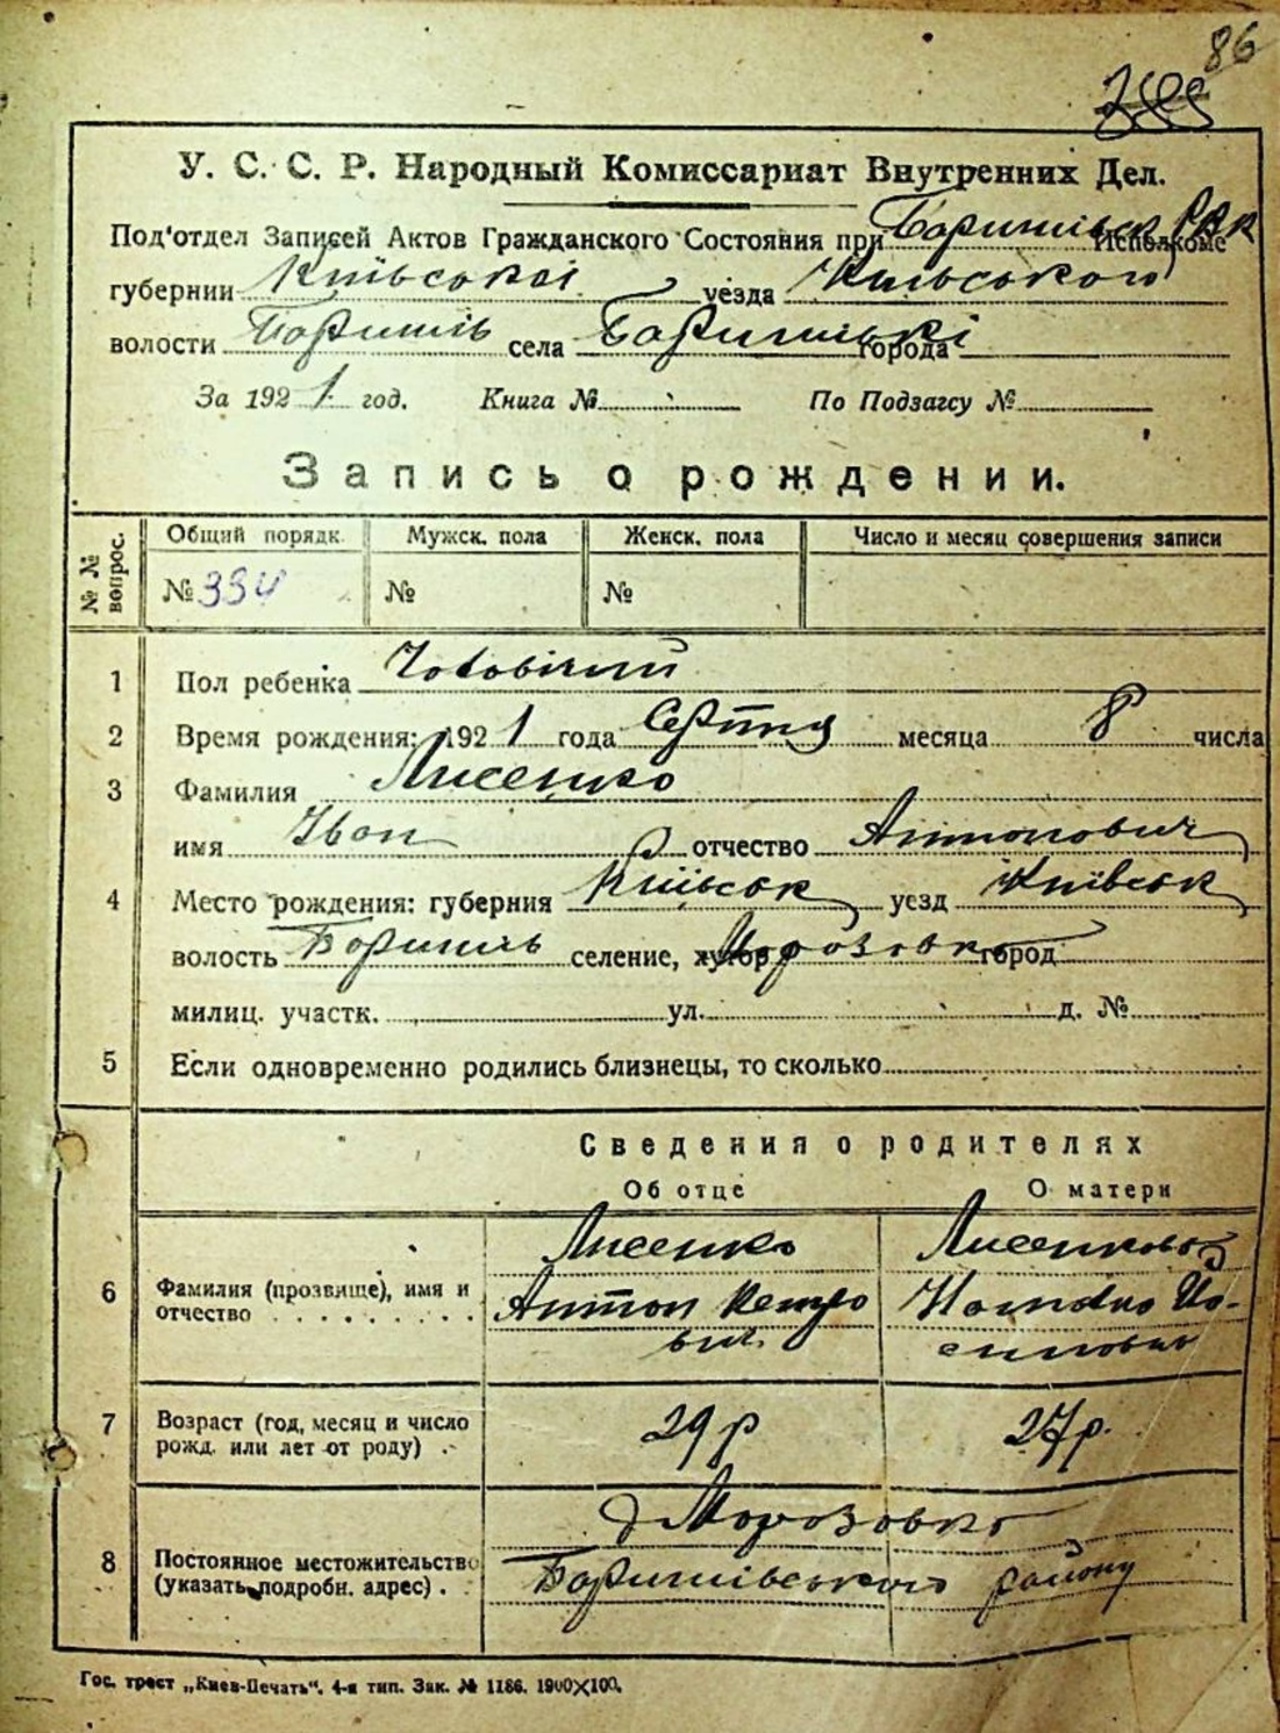 86
399
У. С. С. Р. Народный Комиссариат Внутренних Дел.
Под'отдел Записей Актов Гражданского Состояния при Баришівськ РВК Исполкоме
губернии Київської уезда Київського
волости Баришів села Баришівкі города
За 1921 год. Книга № По Подзагсу №
Запись о рождении.
№ № вопрос. Общий порядк. Мужск. пола Женск. пола Число и месяц совершения записи
№ 334 № №
1 Пол ребенка Чоловічий
2 Время рождения: 1921 года Серпня месяца 8 числа
3 Фамилия Лисенко
имя Іван отчество Антонович
4 Место рождения: губерния Київськ уезд Київськ
волость Баришів селение, хутор Морозовка город
милиц. участк. ул. д. №
5 Если одновременно родились близнецы, то сколько
Сведения о родителях
Об отце О матери
Лисенко Лисенкова
6 Фамилия (прозвище), имя и отчество Антон Петро
вич.
7 Возраст (год, месяц и число рожд. или лет от роду) 29 р 27 р.
Морозовка
8 Постоянное местожительство (указать подробн. адрес) Баришівського району
Гос. трест „Киев-Печать“. 4-я тип. Зак. № 1186. 1900×100.